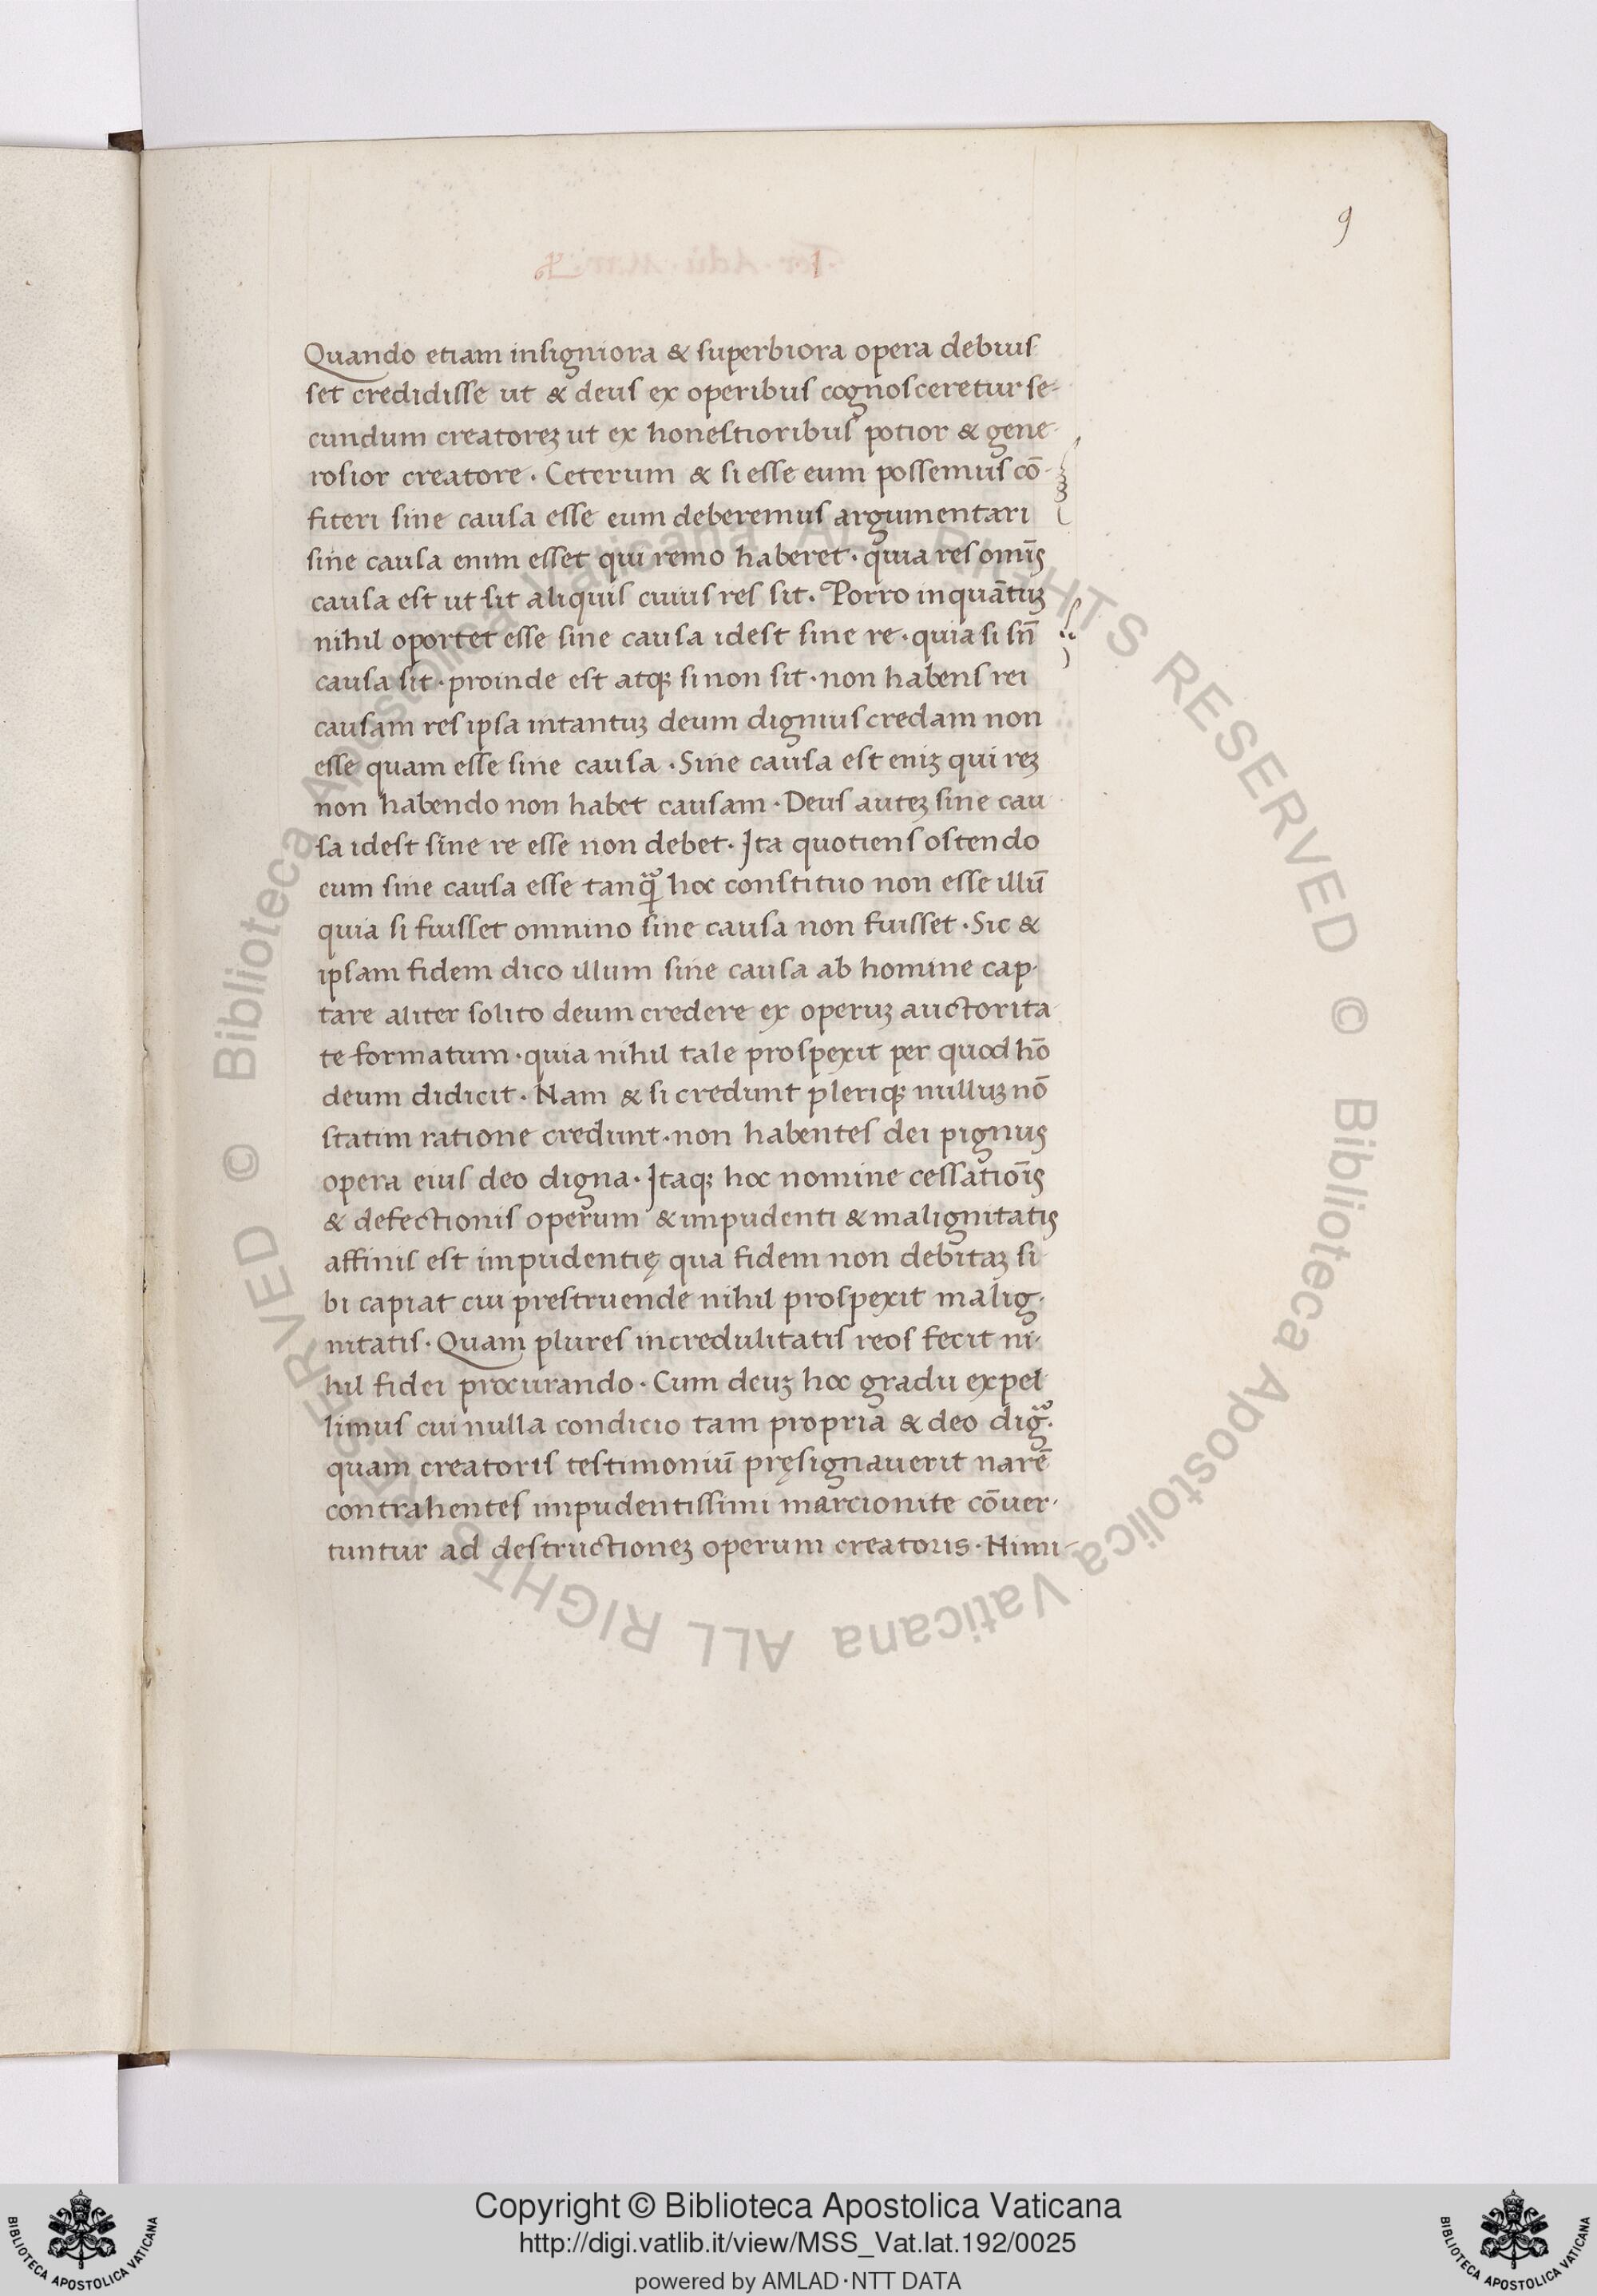 9
Quando etiam insigniora & superbiora opera debuis
set credidisse ut & deus ex operibus cognosceretur se-
cundum creatoreʒ ut ex honestioribus potior & gene-
rosior creatore · Ceterum & si esse eum possemus cō-
fiteri sine causa esse eum deberemus argumentari
sine causa enim esset qui remo haberet · quia res omīs
causa est ut sit aliquis cuius res sit · Porro inquātuʒ
nihil oportet esse sine causa idest sine re · quia si sn̄
causa sit · proinde est atqꝫ si non sit · non habens rei
causam res ipsa intantuʒ deum dignius credam non
esse quam esse sine causa · Sine causa est eniʒ qui reʒ
non habendo non habet causam · Deus auteʒ sine cau
sa idest sine re esse non debet · Ita quotiens ostendo
eum sine causa esse tanqᷓ hoc constituo non esse illū
quia si fuisset omnino sine causa non fuisset · Sic &
ipsam fidem dico illum sine causa ab homine cap-
tare aliter solito deum credere ex operuʒ auctorita
te formatum · quia nihil tale prospexit per quod hō
deum didicit · Nam & si credunt pleriqꝫ nulluʒ nō
statim ratione credunt · non habentes dei pignus
opera eius deo digna · Itaqꝫ hoc nomine cessatiōis
& defectionis operum & impudenti & malignitatis
affinis est impudentię qua fidem non debitaʒ si
bi capiat cui prestruende nihil prospexit malig-
nitatis · Quam plures incredulitatis reos fecit ni-
hil fidei procurando · Cum deuʒ hoc gradu expel
limus cui nulla condicio tam propria & deo digᷓ ·
quam creatoris testimoniū pręsignauerit narē
contrahentes impudentissimi marcionite cōuer-
tuntur ad destructioneʒ operum creatoris · Nimi-
© Biblioteca Apostolica Vaticana ALL RIGHTS RESERVED © Biblioteca Apostolica Vaticana ALL RIGHTS RESERVED
BIBLIOTECA APOSTOLICA VATICANA
Copyright © Biblioteca Apostolica Vaticana
http://digi.vatlib.it/view/MSS_Vat.lat.192/0025
powered by AMLAD·NTT DATA
BIBLIOTECA APOSTOLICA VATICANA